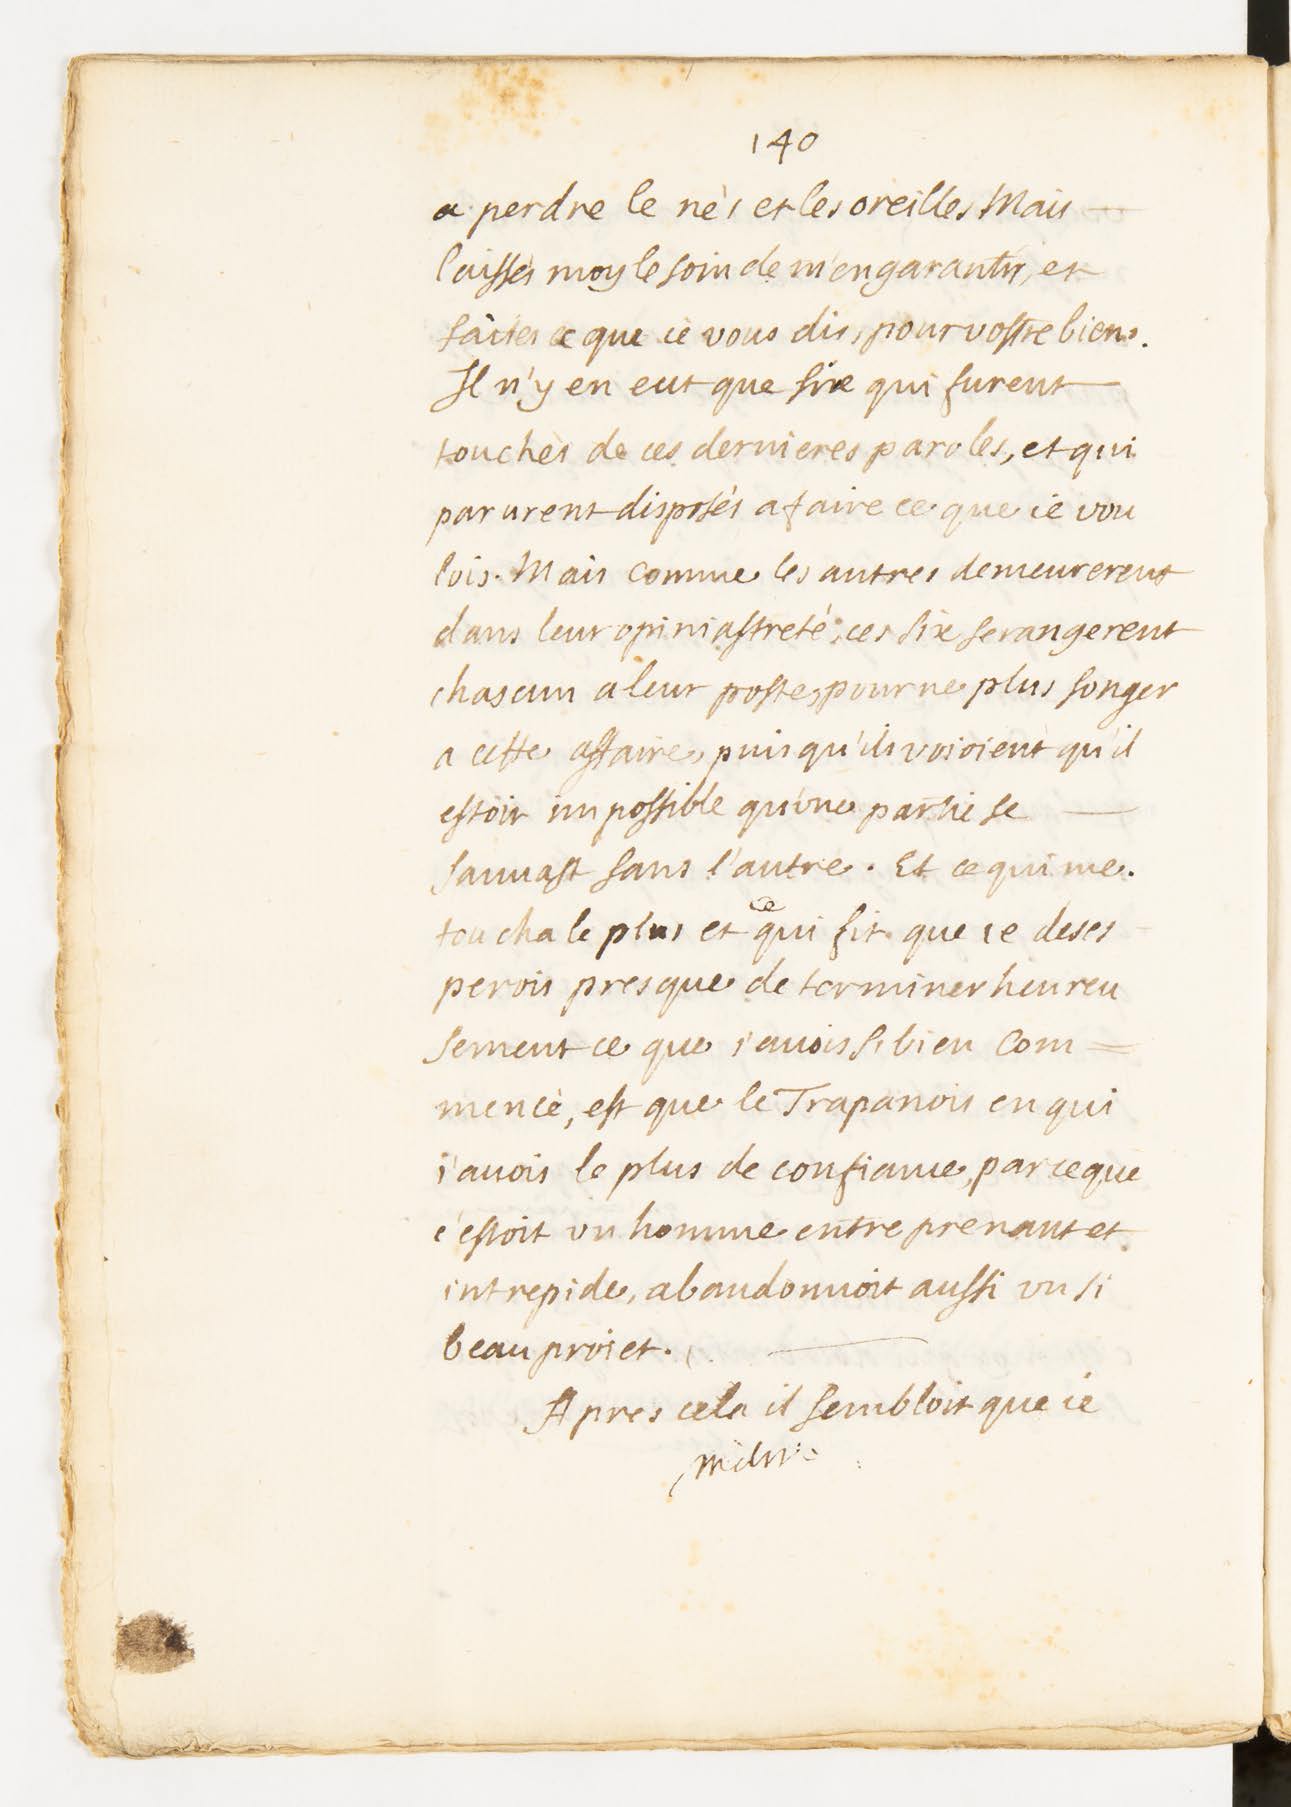 140
a perdre le nés et les oreilles Mais
laissés moy le soin de m'en garantir, et
faites ce que ie vous dis, pour vostre bien.
Il n'y en eut que six qui furent
touchés de ces dernieres paroles, et qui
parurent disposés a faire ce que ie vou
lois. Mais comme les autres demeurerent
dans leur opiniastreté, ces six se rangerent
chascun a leur poste, pour ne plus songer
a cette affaire, puis qu'ils voioient qu'il
estoit impossible qu'vne partie se
sauuast sans l'autre. Et ce qui me
toucha le plus et ce qui fit que ie deses
perois presque de terminer heureu
sement ce que i'auois si bien com=
mencé, est que le Trapanois en qui
i'auois le plus de confiance, parceque
c'estoit vn homme entreprenant et
intrepide, abandonnoit aussi vn si
beau proiet.
Apres cela il sembloit que ie